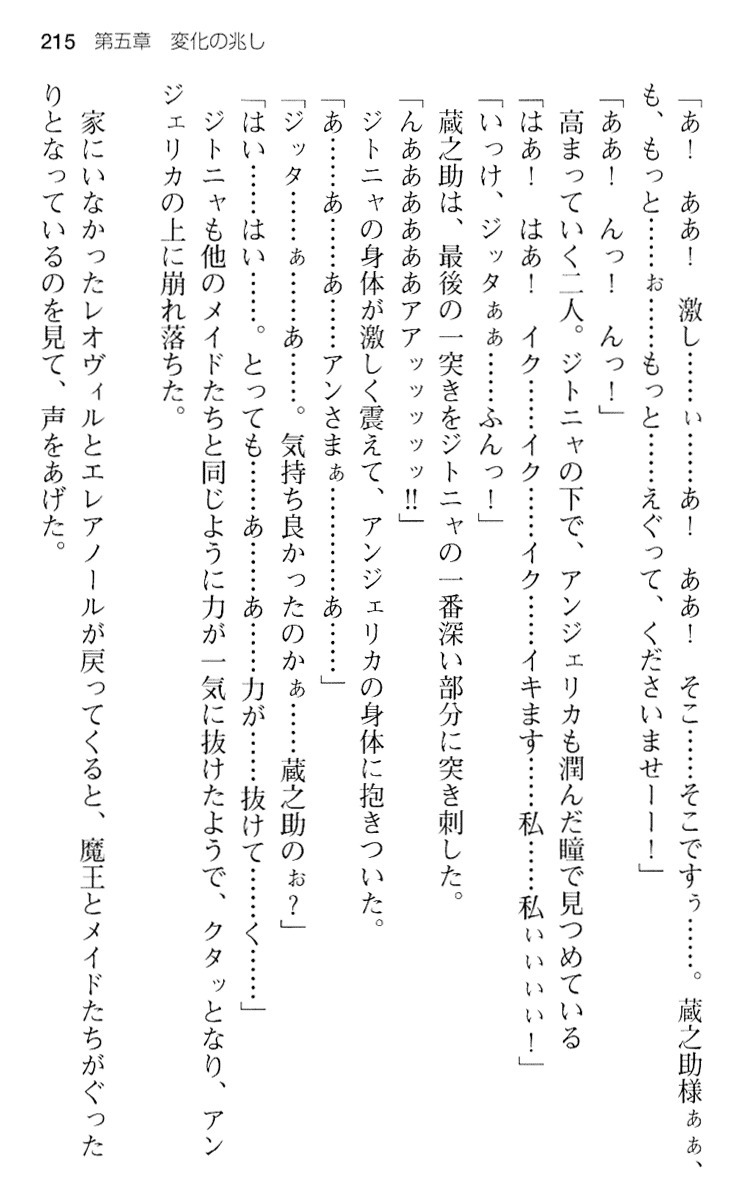 215　第五章　変化の兆し
「あ！　ああ！　激し……ぃ……あ！　ああ！　そこ……そこですぅ……。蔵之助様ぁぁ、
も、もっと……ぉ……もっと……えぐって、くださいませーー！」
「ああ！　んっ！　んっ！」
　高まっていく二人。ジトニャの下で、アンジェリカも潤んだ瞳で見つめている
「はあ！　はあ！　イク……イク……イク……イキます……私……私ぃぃぃぃ！」
「いっけ、ジッタぁぁ……ふんっ！」
　蔵之助は、最後の一突きをジトニャの一番深い部分に突き刺した。
「んあああああアアッッッッッ!!」
　ジトニャの身体が激しく震えて、アンジェリカの身体に抱きついた。
「あ……あ……あ……アンさまぁ…………あ……」
「ジッタ……ぁ……あ……。気持ち良かったのかぁ……蔵之助のぉ？」
「はい……はい……。とっても……あ……あ……力が……抜けて……く……」
　ジトニャも他のメイドたちと同じように力が一気に抜けたようで、クタッとなり、アン
ジェリカの上に崩れ落ちた。
　家にいなかったレオヴィルとエレアノールが戻ってくると、魔王とメイドたちがぐった
りとなっているのを見て、声をあげた。